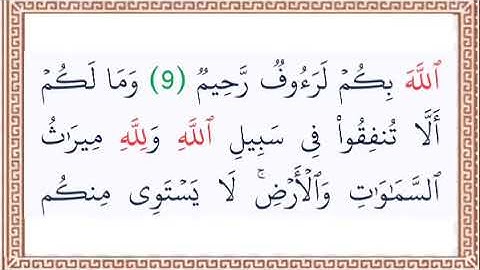 ٱللَّهَ بِكُمۡ لَرَءُوفٌ رَّحِيمٌ (9) وَمَا لَكُمۡ
أَلَّا تُنفِقُواْ فِي سَبِيلِ ٱللَّهِ وَلِلَّهِ مِيرَٰثُ
ٱلسَّمَٰوَٰتِ وَٱلۡأَرۡضِۚ لَا يَسۡتَوِي مِنكُم